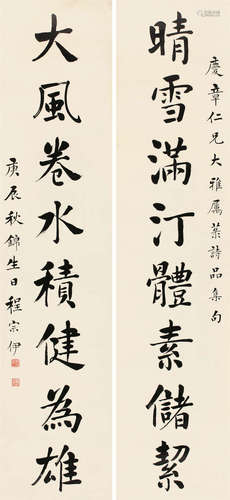 慶章仁兄大雅屬葉詩品集句
晴雪滿汀體素儲絜
大風卷水積健為雄
庚辰秋錦生日程宗伊